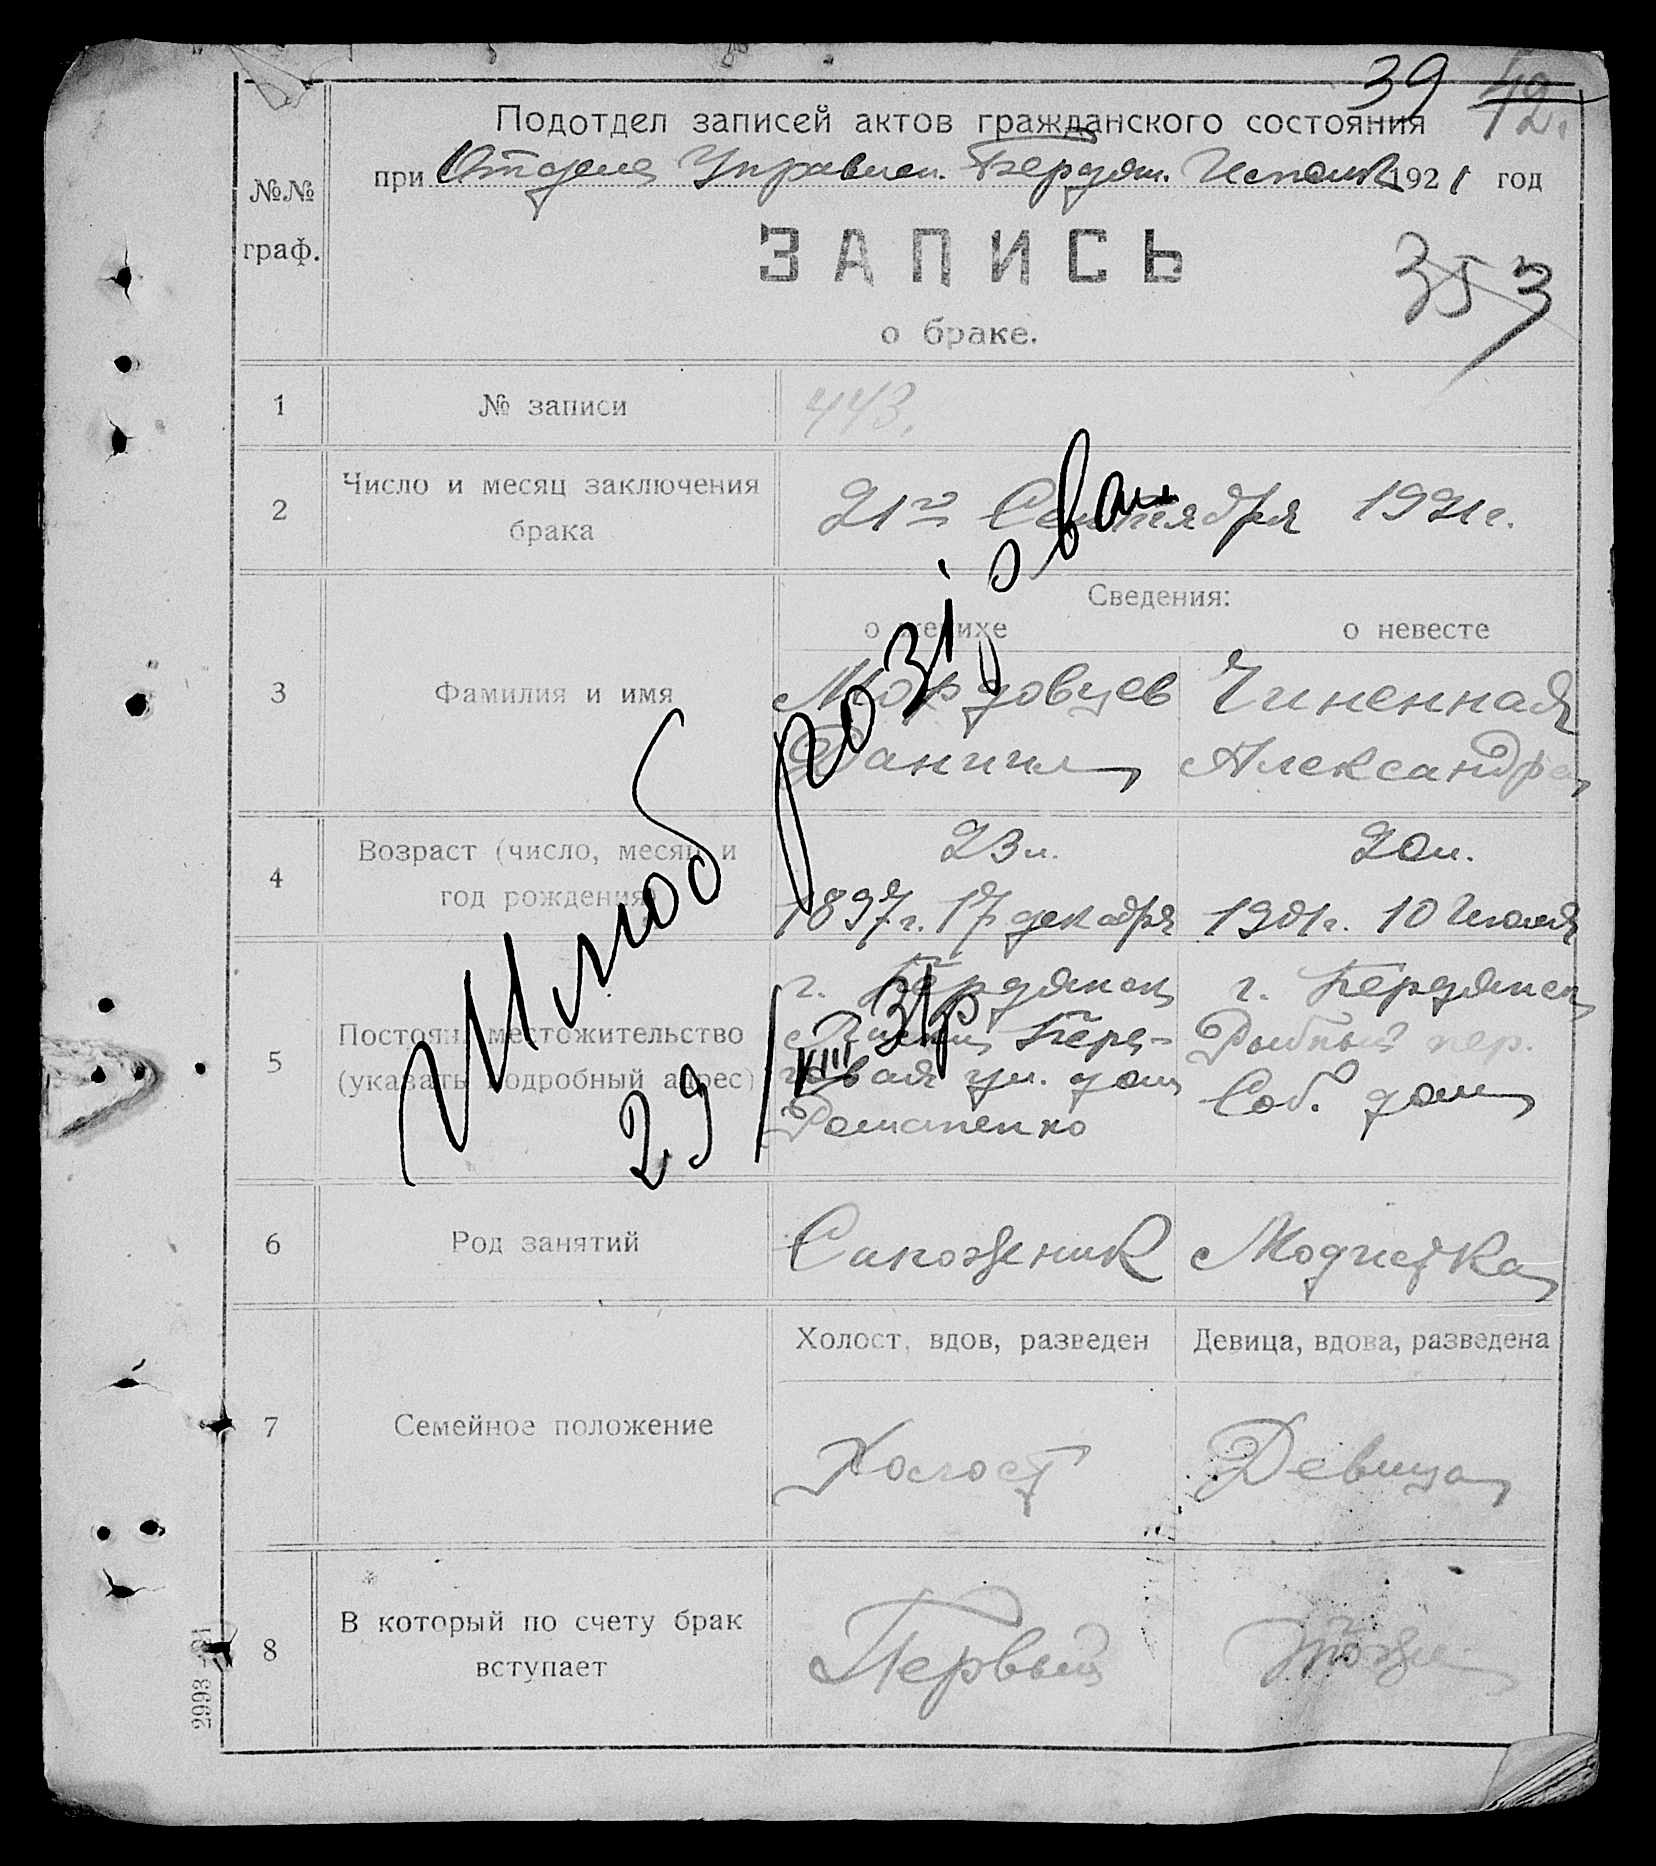 39 42.
Подотдел записей актов гражданского состояния
при Отделе Управлен. Бердян. Исполк. 1921 год
№№
граф.
ЗАПИСЬ
353
о браке.
1 № записи 443.
2 Число и месяц заключения
брака
21го Сентября 1921г.
Сведения:
о женихе о невесте
3 Фамилия и имя
Мордовцев Чиненная
Даниил Александра
4 Возраст (число, месяц и
год рождения)
23 л. 20 л.
1897г. 17 декабря 1901г. 10 Июля
5 Постоян. местожительство
(указать подробный адрес)
г. Бердянск г. Бердянск
Бере- Рыбный пер.
говая ул. дом Соб. дом
Романенко
Шлюб розірван
29/VIII 31р
6 Род занятий Сапожник Модистка
Холост, вдов, разведен Девица, вдова, разведена
7 Семейное положение Холост Девица
8 В который по счету брак
вступает
Первый тоже
2993—21